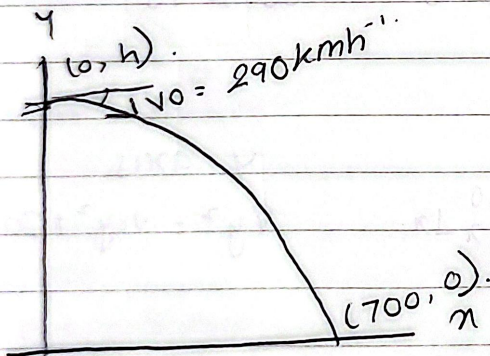 y
(0, h).
V0 = 290kmh⁻¹.
(700, 0).
x